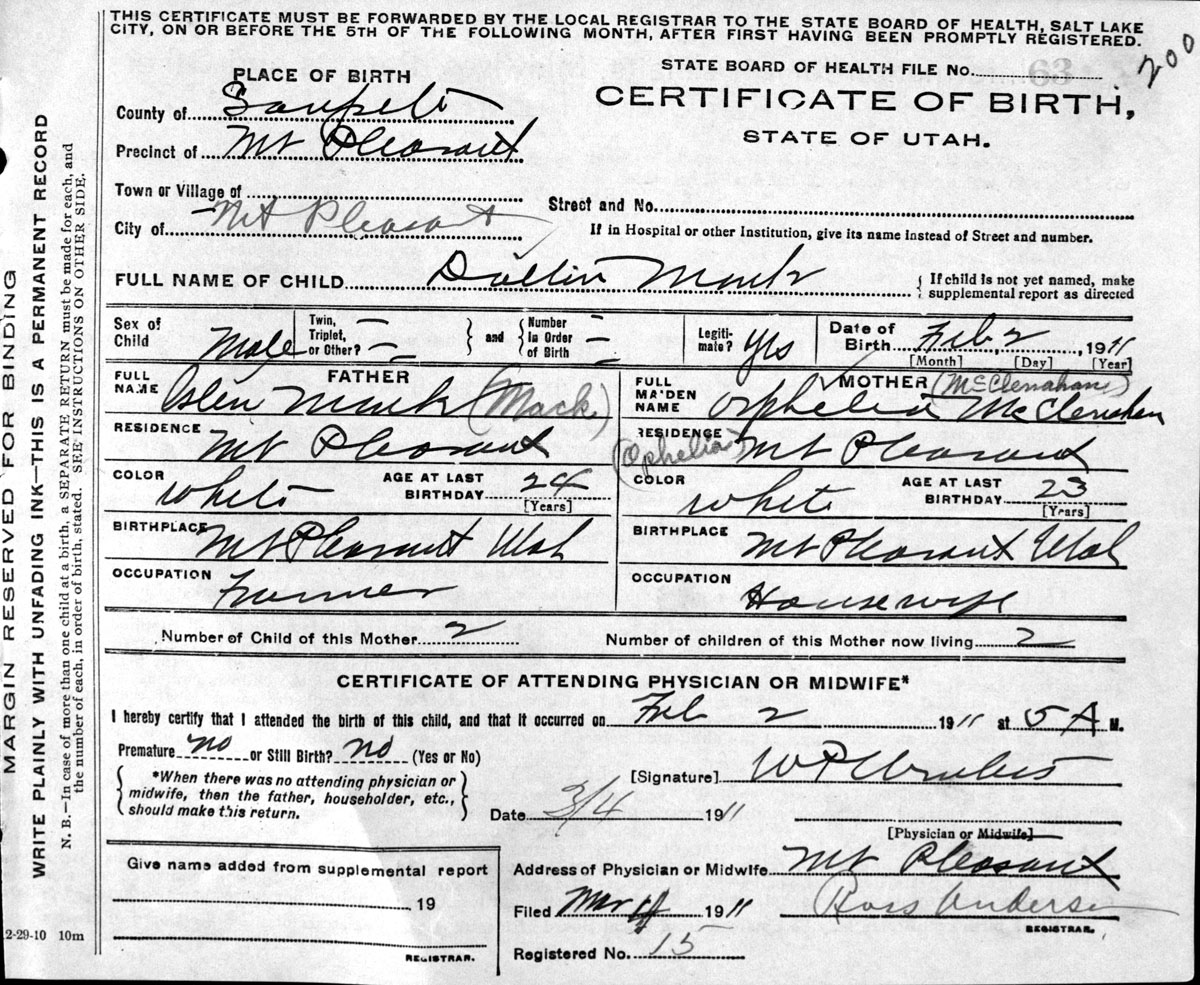 THIS CERTIFICATE MUST BE FORWARDED BY THE LOCAL REGISTRAR TO THE STATE BOARD OF HEALTH, SALT LAKE
CITY, ON OR BEFORE THE 5TH OF THE FOLLOWING MONTH, AFTER FIRST HAVING BEEN PROMPTLY REGISTERED.
200
STATE BOARD OF HEALTH FILE No. 63
CERTIFICATE OF BIRTH,
STATE OF UTAH.
PLACE OF BIRTH
County of Sanpete
Precinct of Mt Pleasant
Town or Village of
City of Mt Pleasant
Street and No.
If in Hospital or other Institution, give its name instead of Street and number.
FULL NAME OF CHILD Dallin Monk
If child is not yet named, make
supplemental report as directed
Sex of Child Male
Twin, Triplet, or Other? —
and
Number In Order of Birth —
Legitimate? yes
Date of Birth Feb 2, 1911
[Month] [Day] [Year]
FATHER
FULL NAME Monk (Mack)
RESIDENCE Mt Pleasant
COLOR White
AGE AT LAST BIRTHDAY 24
[Years]
BIRTHPLACE Mt Pleasant Utah
OCCUPATION Farmer
MOTHER (McClenahan)
FULL MAIDEN NAME Orphelia McClenahan
(Ophelia)
RESIDENCE Mt Pleasant
COLOR White
AGE AT LAST BIRTHDAY 23
[Years]
BIRTHPLACE Mt Pleasant Utah
OCCUPATION Housewife
Number of Child of this Mother 2
Number of children of this Mother now living 2
CERTIFICATE OF ATTENDING PHYSICIAN OR MIDWIFE*
I hereby certify that I attended the birth of this child, and that it occurred on Feb 2 1911 at 5 A M.
Premature no or Still Birth? no (Yes or No)
*When there was no attending physician or
midwife, then the father, householder, etc.,
should make this return.
[Signature] W P
Date 3/4 1911
[Physician or Midwife]
Address of Physician or Midwife Mt Pleasant
Filed Mar 4 1911
Ross Anderson
REGISTRAR.
Registered No. 15
Give name added from supplemental report
19
REGISTRAR.
2-29-10 10m
MARGIN RESERVED FOR BINDING
WRITE PLAINLY WITH UNFADING INK—THIS IS A PERMANENT RECORD
N. B.—In case of more than one child at a birth, a SEPARATE RETURN must be made for each, and
the number of each, in order of birth, stated. SEE INSTRUCTIONS ON OTHER SIDE.